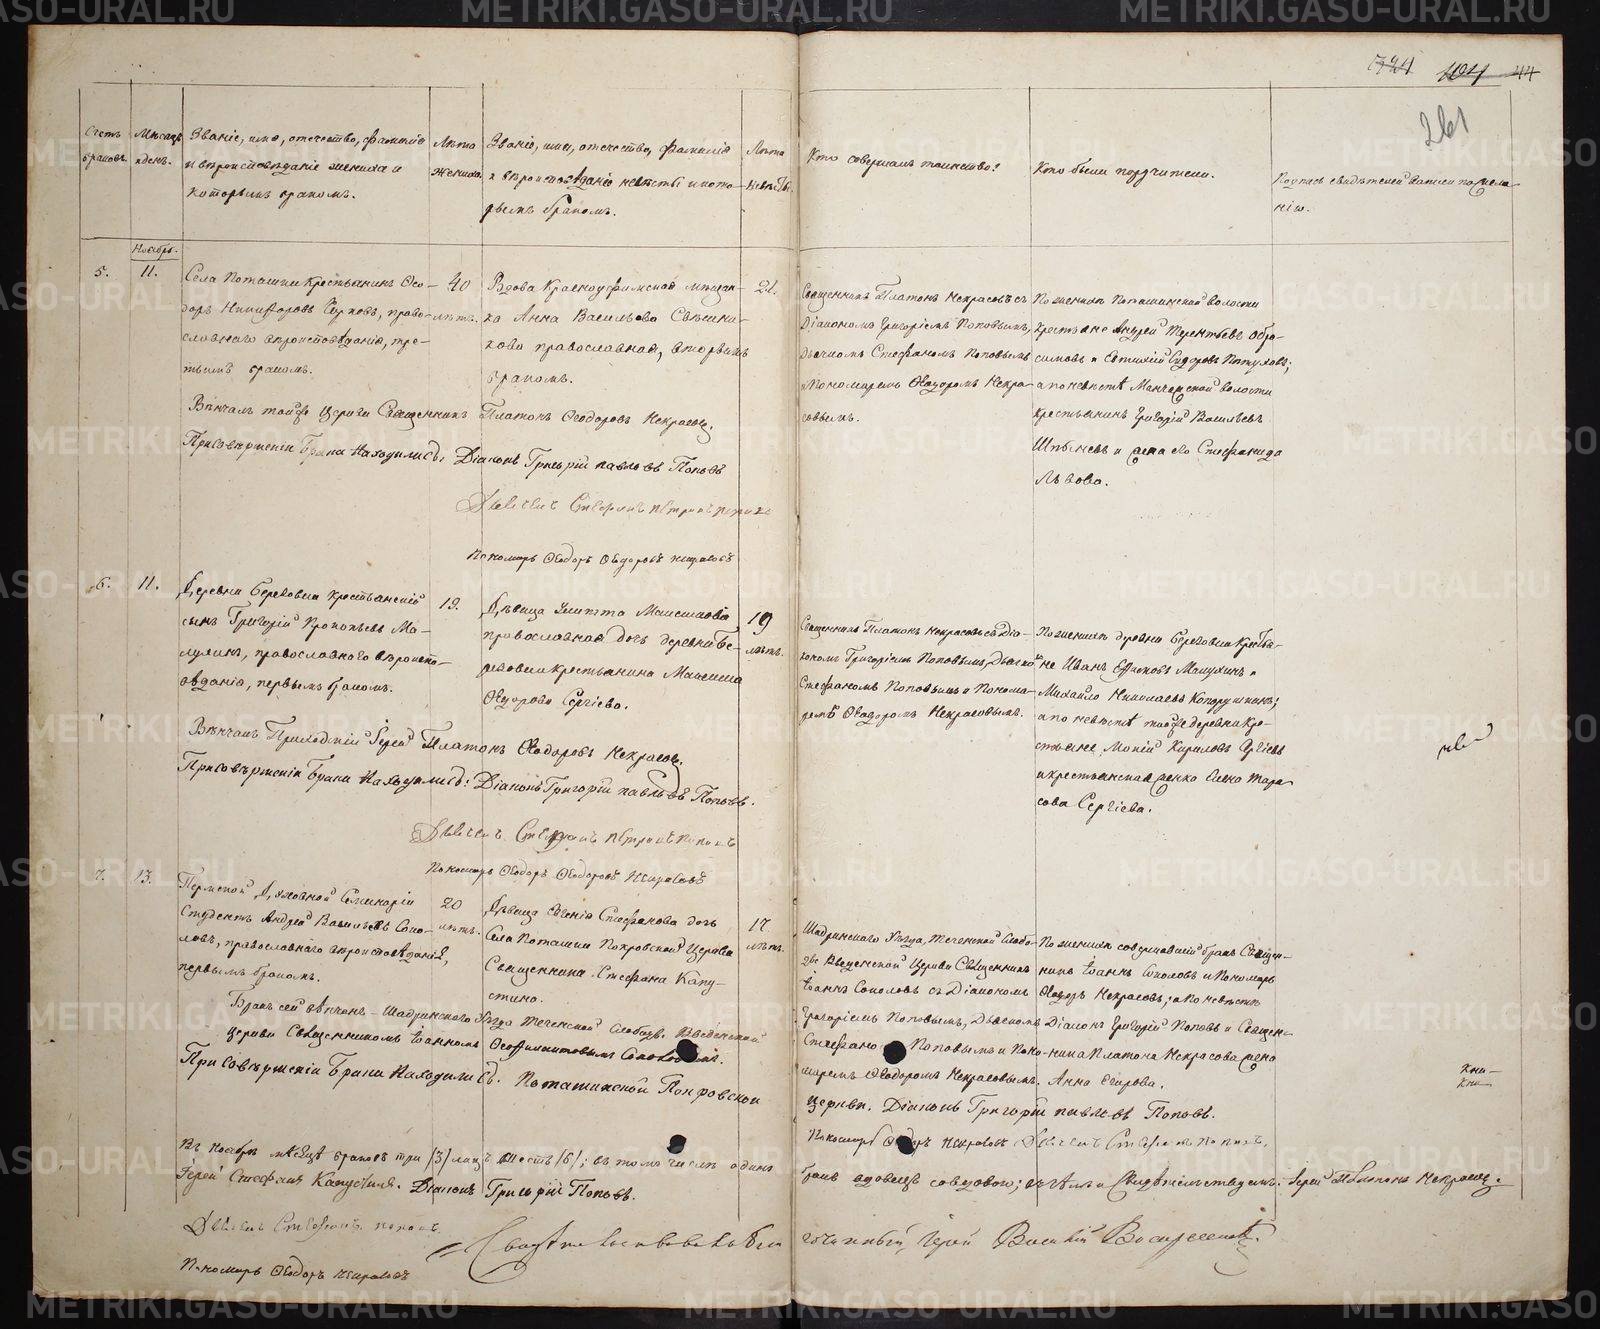 261
Счетъ браковъ.
Мѣсяцъ и день.
Званіе, имя, отечество, фамилія
и вѣроисповѣданіе жениха и
которымъ бракомъ.
Лѣта жениха.
Званіе, имя, отечество, фамилія
и вѣроисповѣданіе невѣсты и кото-
рымъ бракомъ.
Лѣта невѣсты.
Кто совершалъ таинство?
Кто были поручители.
Подпись свидѣтелей записи по жела-
нію.
Ноябрь.
5.
11.
Села Поташки крестьянинъ Ѳео-
доръ Никифоровъ право-
славнаго вѣроисповѣданія, тре-
тьимъ бракомъ.
40
лѣтъ.
Вдова Красноуфимская мѣщан-
ка Анна Васильева
православная, вторымъ
бракомъ.
21.
Священникъ Платонъ Некрасовъ съ
Діакономъ Григоріемъ Поповымъ,
Дьячкомъ Стефаномъ Поповымъ
и Пономаремъ Ѳеодоромъ Некра-
совымъ.
По женихѣ Поташинской волости
крестьяне Андрей Терентьевъ
и Сидоровъ Петуховъ;
а по невѣстѣ Манчажской волости
крестьянинъ Григорій Васильевъ
и жена его Стефанида
Львова.
Вѣнчалъ тойже Церкви Священникъ Платонъ Ѳеодоровъ Некрасовъ.
При Совѣршеніи Брака Находились: Діаконъ Григорій Павловъ Поповъ
Дьячекъ Стефанъ Петровъ Поповъ
Пономарь Ѳеодоръ Ѳеодоровъ Некрасовъ
6.
11.
Деревни Береговыя крестьянскій
сынъ Григорій Прокопьевъ Ма-
лухинъ, православнаго вѣроиспо-
вѣданія, первымъ бракомъ.
19.
Дѣвица Максимова
православная дочь деревни Бе-
реговыя крестьянина Максима
Ѳедорова Сергѣева.
19
лѣтъ.
Священникъ Платонъ Некрасовъ съ Діа-
кономъ Григоріемъ Поповымъ, Дьячко
Стефаномъ Поповымъ и Понома-
ремъ Ѳеодоромъ Некрасовымъ.
По женихѣ деревни Береговыя Крестья-
не Иванъ Малухинъ и
Михайло Николаевъ
а по невѣстѣ тойже деревни кре-
стьяне Мокій Кириловъ Сергѣевъ
и крестьянская женка Елена Тара-
сова Сергѣева.
Вѣнчалъ Приходскій Іерей Платонъ Ѳеодоровъ Некрасовъ.
При Совѣршеніи Брака Находились: Діаконъ Григорій Павловъ Поповъ.
Дьячекъ Стефанъ Петровъ Поповъ
Пономарь Ѳеодоръ Ѳеодоровъ Некрасовъ
7.
13.
Пермской Духовной Семинаріи
Студентъ Андрей Васильевъ Соко-
ловъ, православнаго вѣроисповѣданія,
первымъ бракомъ.
20
лѣтъ.
Дѣвица Евгенія Стефанова дочь
Села Поташки Покровской Церкви
Священника Стефана Капу-
стина.
17
лѣтъ.
Шадринскаго Уѣзда, Теченской Слобо-
ды Введенской Церкви Священникъ
Іоаннъ Соколовъ съ Діакономъ
Григоріемъ Поповымъ, Дьячкомъ
Стефаномъ Поповымъ и Поно-
маремъ Ѳеодоромъ Некрасовымъ.
По женихѣ совершавшій бракъ Священ-
никъ Іоаннъ Соколовъ и Пономарь
Ѳедоръ Некрасовъ; а по невѣстѣ
Діаконъ Григорій Поповъ и Священ-
ника Платона Некрасова жена
Анна Егорова.
Бракъ сей вѣнчанъ Шадринскаго Уѣзда Теченской Слободы Введенской
церкви Священникомъ Іоанномъ Ѳеофилактовымъ Соколовымъ.
При Совѣршеніи Брака Находились Поташинской Покровской
Церкви. Діаконъ Григорій Павловъ Поповъ.
Пономарь Ѳеодоръ Некрасовъ Дьячекъ Стефанъ Поповъ.
Въ Ноябрѣ мѣсяцѣ браковъ три /3/ лицъ шесть /6/; въ томъ числѣ одинъ
бракъ вдовца со вдовою; въ чемъ и Свидѣтельствуемъ. Іерей Платонъ Некрасовъ.
Іерей Стефанъ Капустинъ. Діаконъ Григорій Поповъ.
Дьячекъ Стефанъ Поповъ
Свидѣтельствовалъ Благочинный, Іерей Василій
Пономарь Ѳеодоръ Некрасовъ
METRIKI.GASO-URAL.RU